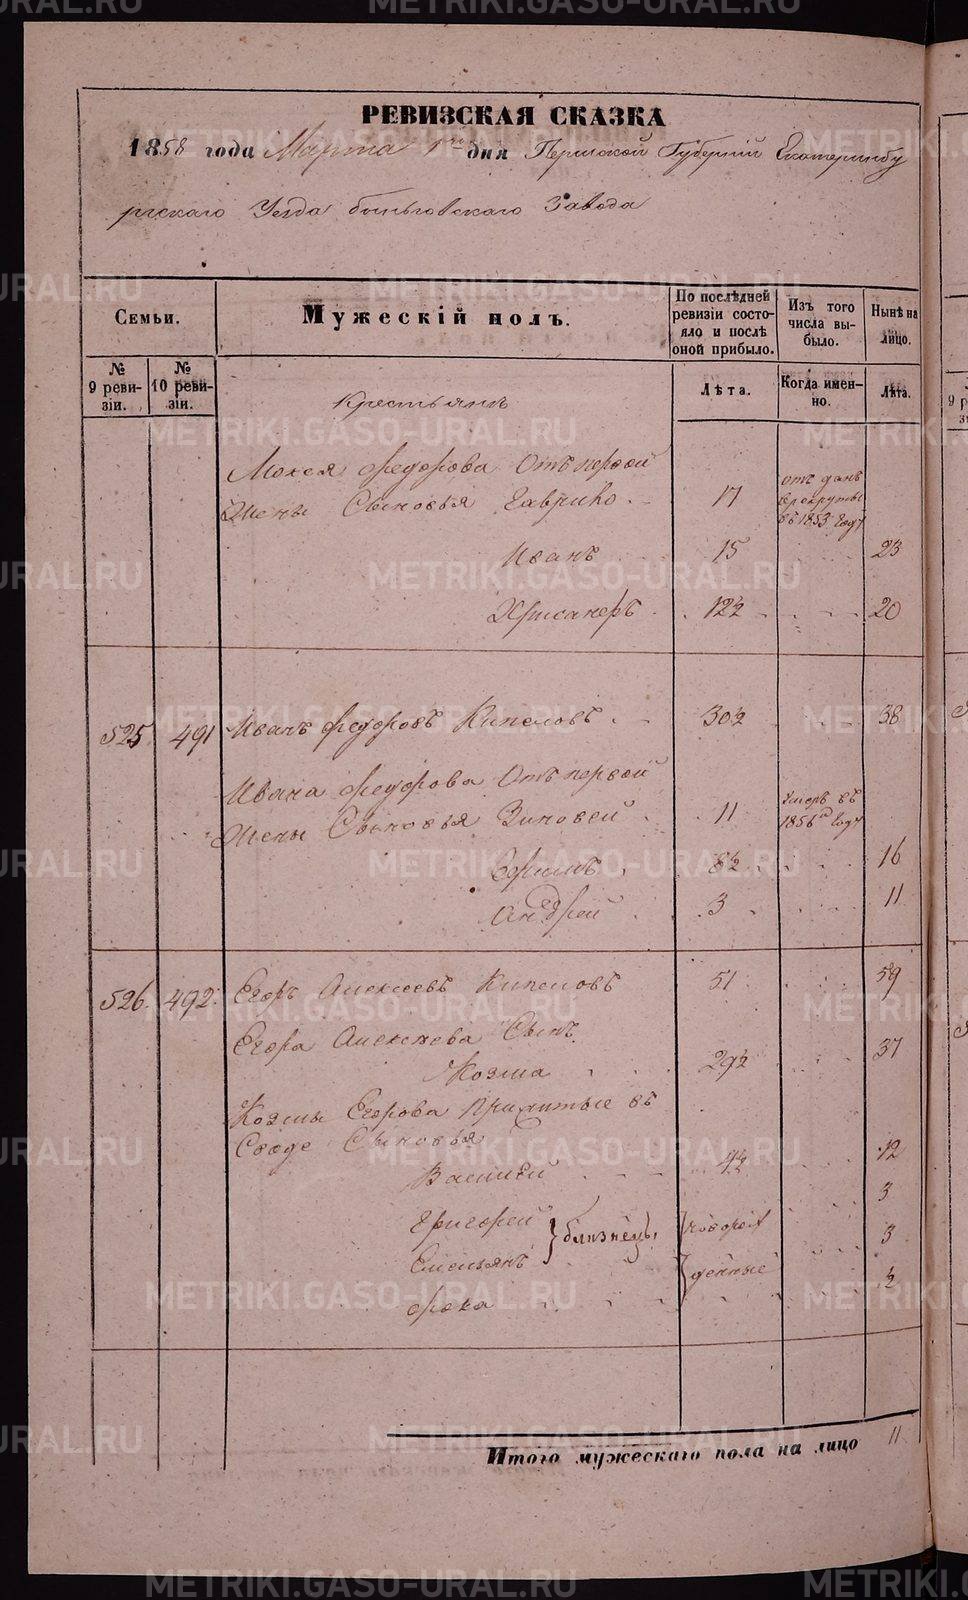 РЕВИЗСКАЯ СКАЗКА
1858 года Марта 1го дня Пермской Губерніи Екатеринбу
ргскаго Уезда быньговскаго Завода
Семьи.
Мужескій полъ.
По послѣдней ревизіи состояло и послѣ оной прибыло.
Изъ того числа выбыло.
Нынѣ на лицо.
№ 9 ревизіи.
№ 10 ревизіи.
Лѣта.
Когда именно.
Лѣта.
Крестьянъ
Мокея Федорова Отъ первой
Жены Сыновья Гаврило 17 отъ данъ в рекруты въ 1853 году
Иванъ 15 23
Хрисанфъ 12½ 20
525 491 Иванъ Федоровъ Кипеловъ 30½ 38
Ивана Федорова Отъ первой
Жены Сыновья Зиновей 11 Умеръ въ 1856м Году
Ефимъ 8½ 16
Андрей 3 11
526. 492. Егоръ Алексеевъ Кипеловъ 51 59
Егора Алексеева Сынъ
Козма 29½ 37
Козмы Егорова прижитые въ
Сыновья
Василей 4½ 12
Григорей } близнецы { новорож 3
Емельянъ денные 3
Фока ½
Итого мужескаго пола на лицо 11
METRIKI.GASO-URAL.RU